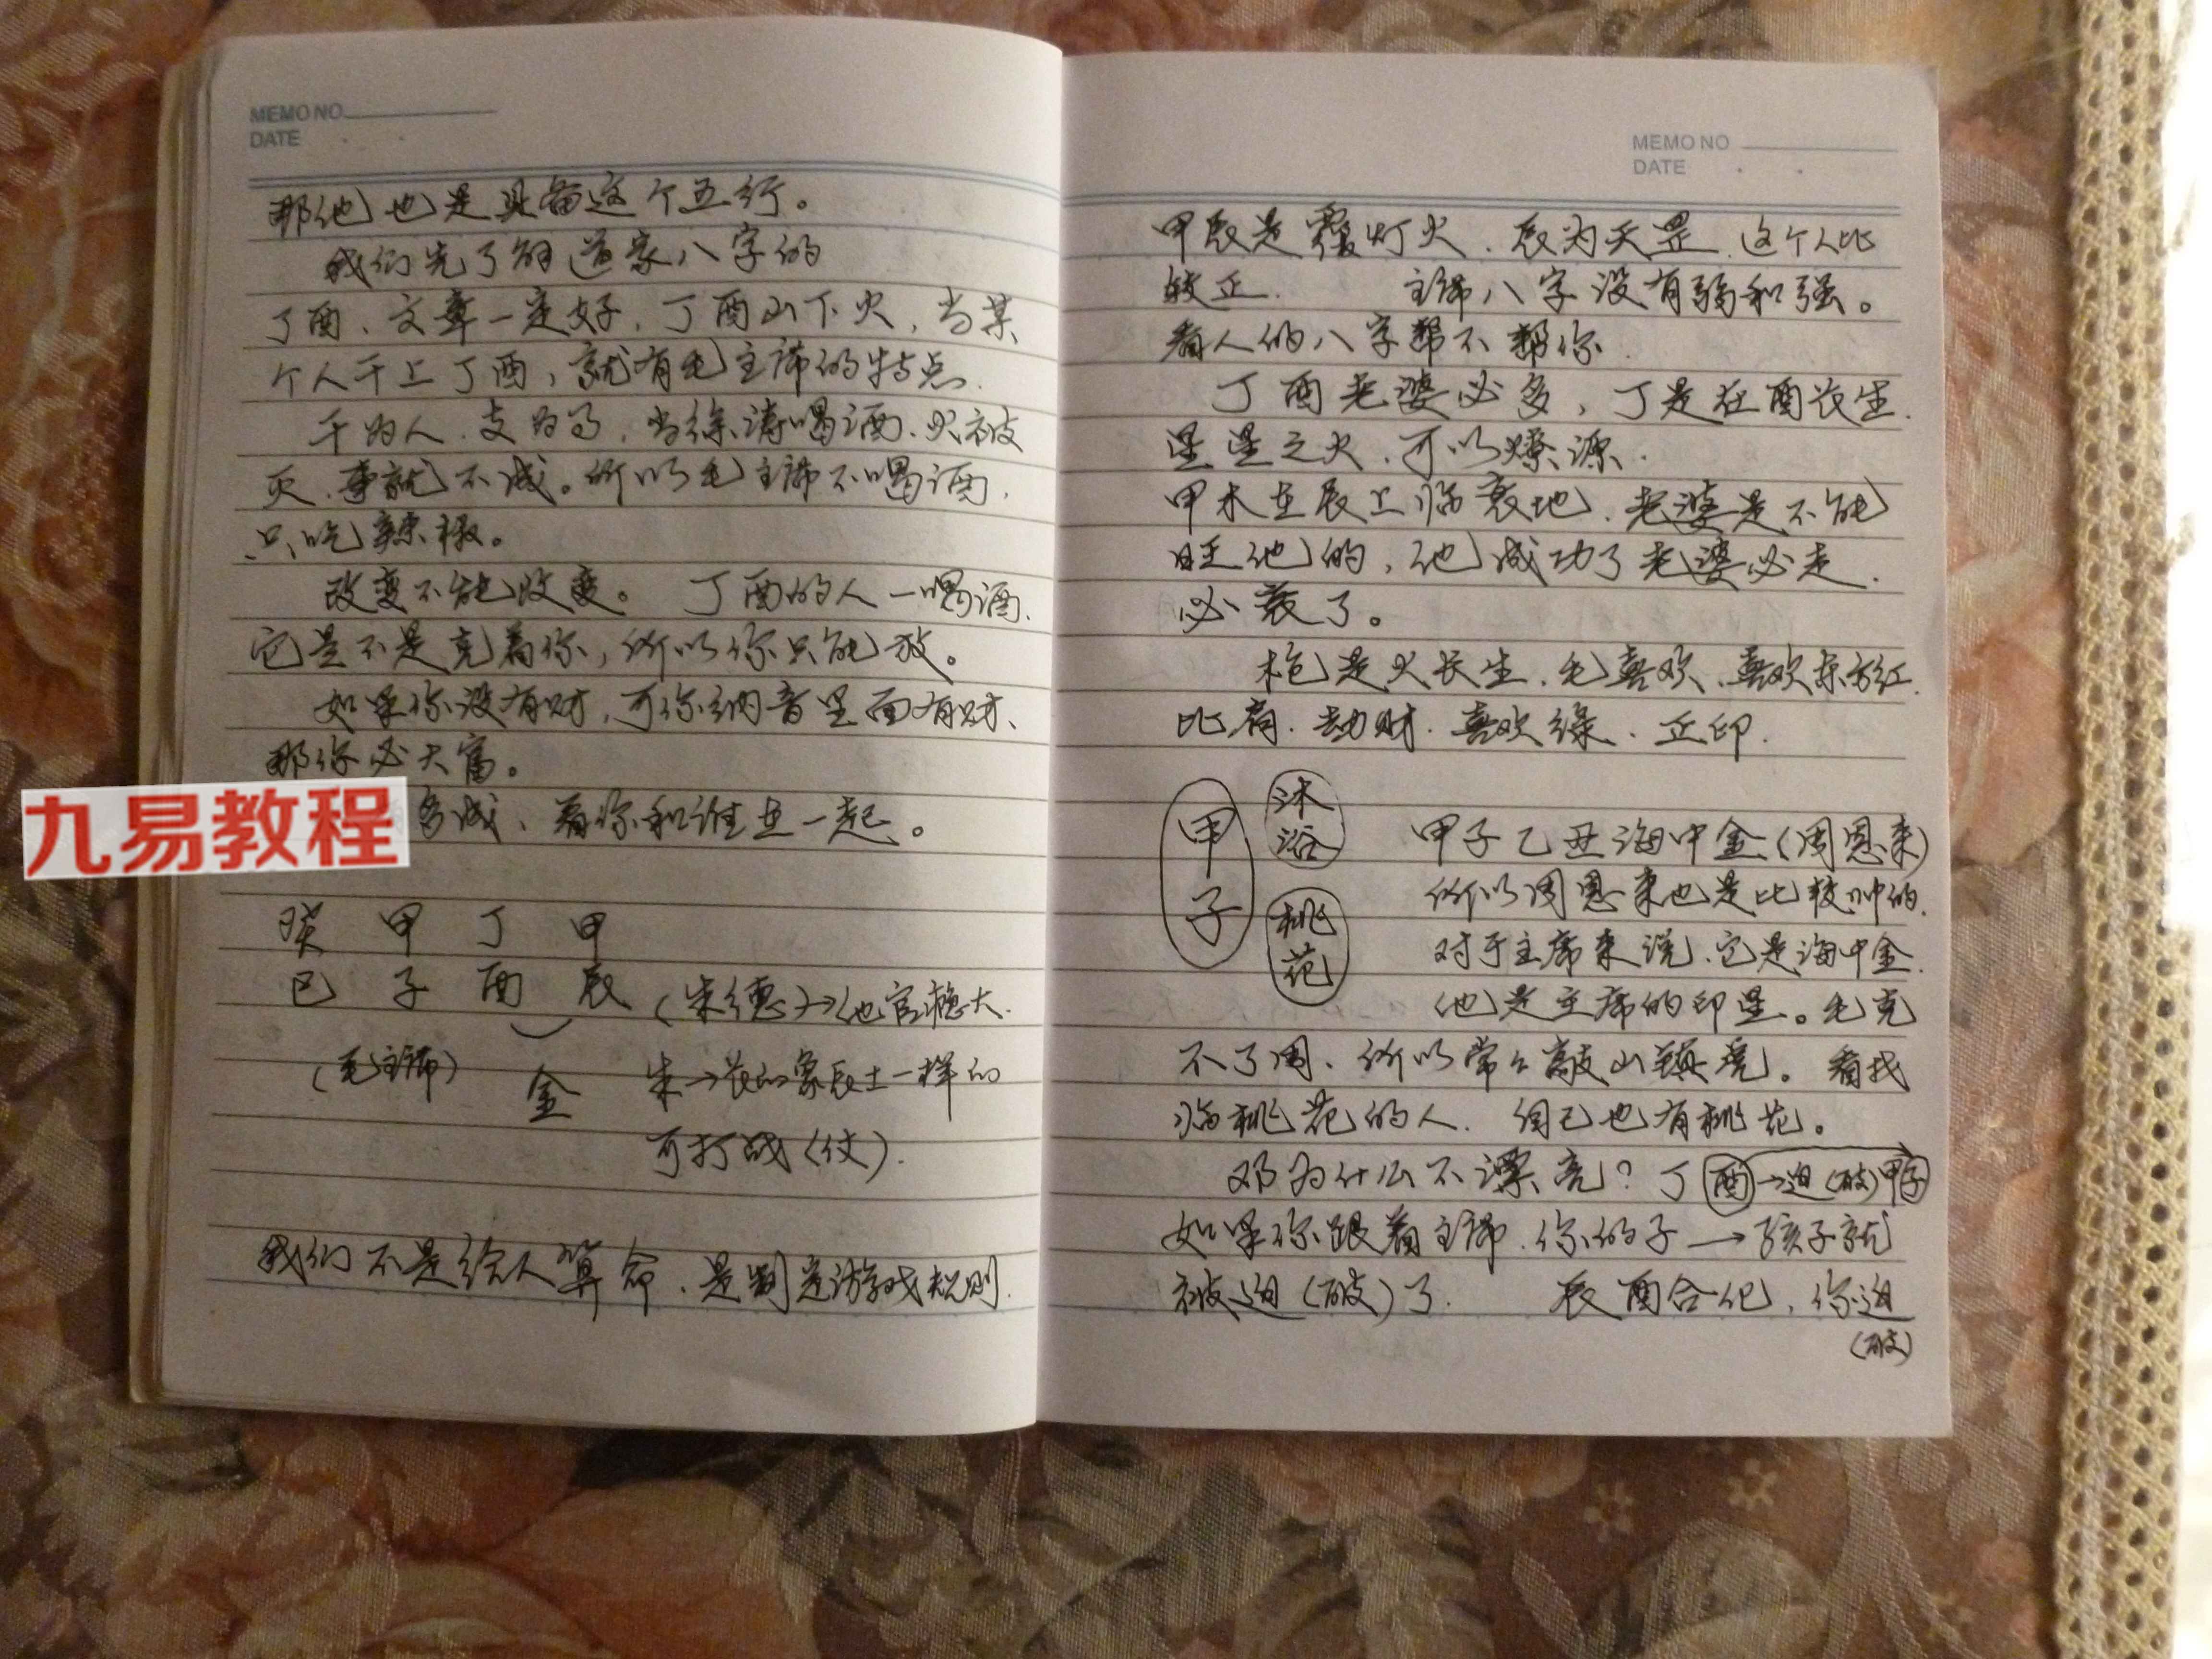 MEMO NO
DATE
那他也是具备这个五行。
我们先了解道家八字的
丁酉、文章一定好，丁酉山下火，当某
个人干上丁酉，就有毛主席的特点.
干为人.支为马，当徐涛喝酒、火被
灭、事就不成。所以毛主席不喝酒，
只吃辣椒。
改变不能改变。 丁酉的人一喝酒.
它是不是克着你，所以你只能放。
如果你没有财，可你纳音里面有财、
那你必大富。
九易教程
多成、看你和谁在一起。
癸 甲 丁 甲
巳 子 酉 辰 (朱德)→他官稳大.
(毛主席) 金 朱→长的象辰土一样的
可打战(仗).
我们不是给人算命、是制定游戏规则.
MEMO NO
DATE
甲辰是覆灯火、辰为天罡.这个人比
较正. 主席八字没有弱和强。
看人的八字帮不帮你.
丁酉老婆必多，丁是在酉长生.
星星之火、可以燎源.
甲木在辰上临衰地、老婆是不能
旺他的，他成功了老婆必走.
必衰了。
枪是火长生.毛喜欢、喜欢东方红.
比肩.劫财.喜欢绿.正印.
甲子
沐浴
桃花
甲子乙丑海中金(周恩来)
所以周恩来也是比较帅的.
对于主席来说、它是海中金.
他是主席的印星。毛克
不了周、所以常々敲山镇虎。看找
临桃花的人. 自己也有桃花。
邓为什么不漂亮？丁酉→迫(破)甲子
如果你跟着主席.你的子→孩子就
被迫(破)了. 辰酉合化，你迫
(破)